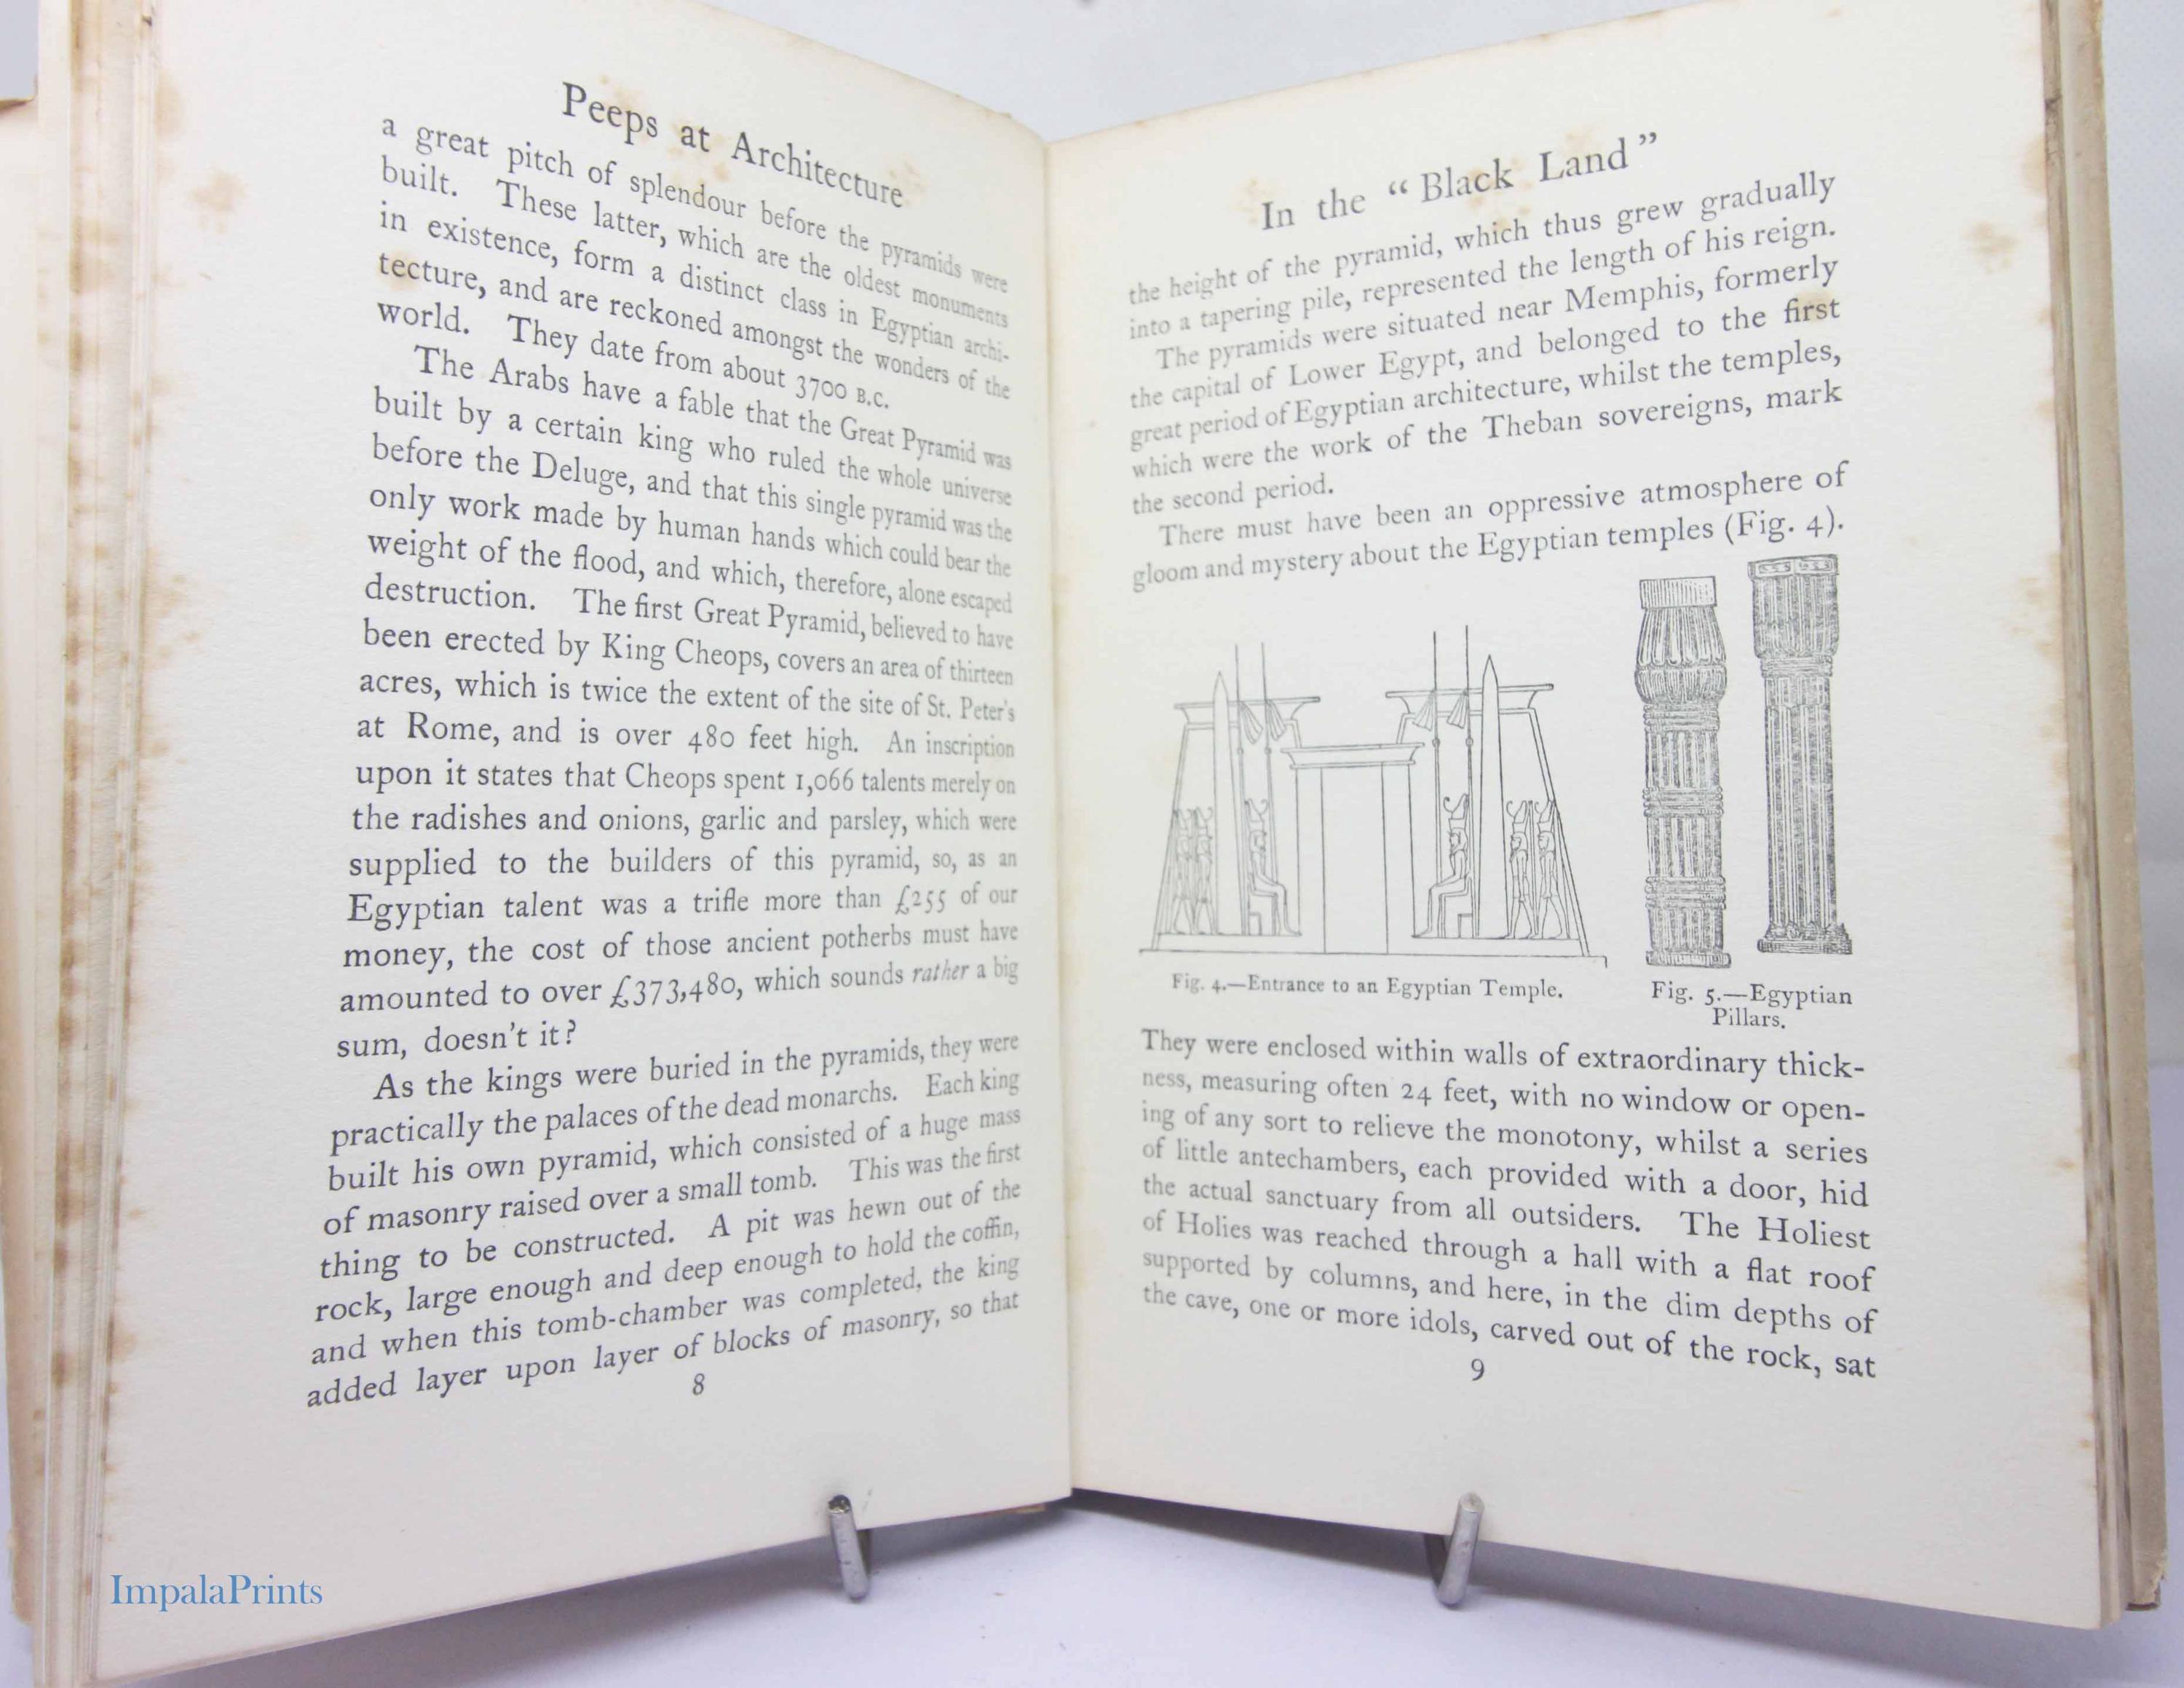 Peeps at Architecture
a great pitch of splendour before the pyramids were
built. These latter, which are the oldest monuments
in existence, form a distinct class in Egyptian archi-
tecture, and are reckoned amongst the wonders of the
world. They date from about 3700 B.C.
The Arabs have a fable that the Great Pyramid was
built by a certain king who ruled the whole universe
before the Deluge, and that this single pyramid was the
only work made by human hands which could bear the
weight of the flood, and which, therefore, alone escaped
destruction. The first Great Pyramid, believed to have
been erected by King Cheops, covers an area of thirteen
acres, which is twice the extent of the site of St. Peter's
at Rome, and is over 480 feet high. An inscription
upon it states that Cheops spent 1,066 talents merely on
the radishes and onions, garlic and parsley, which were
supplied to the builders of this pyramid, so, as an
Egyptian talent was a trifle more than £255 of our
money, the cost of those ancient potherbs must have
amounted to over £373,480, which sounds rather a big
sum, doesn't it?
As the kings were buried in the pyramids, they were
practically the palaces of the dead monarchs. Each king
built his own pyramid, which consisted of a huge mass
of masonry raised over a small tomb. This was the first
thing to be constructed. A pit was hewn out of the
rock, large enough and deep enough to hold the coffin,
and when this tomb-chamber was completed, the king
added layer upon layer of blocks of masonry, so that
8
In the “Black Land”
the height of the pyramid, which thus grew gradually
into a tapering pile, represented the length of his reign.
The pyramids were situated near Memphis, formerly
the capital of Lower Egypt, and belonged to the first
great period of Egyptian architecture, whilst the temples,
which were the work of the Theban sovereigns, mark
the second period.
There must have been an oppressive atmosphere of
gloom and mystery about the Egyptian temples (Fig. 4).
Fig. 4.—Entrance to an Egyptian Temple.
Fig. 5.—Egyptian
Pillars.
They were enclosed within walls of extraordinary thick-
ness, measuring often 24 feet, with no window or open-
ing of any sort to relieve the monotony, whilst a series
of little antechambers, each provided with a door, hid
the actual sanctuary from all outsiders. The Holiest
of Holies was reached through a hall with a flat roof
supported by columns, and here, in the dim depths of
the cave, one or more idols, carved out of the rock, sat
9
ImpalaPrints